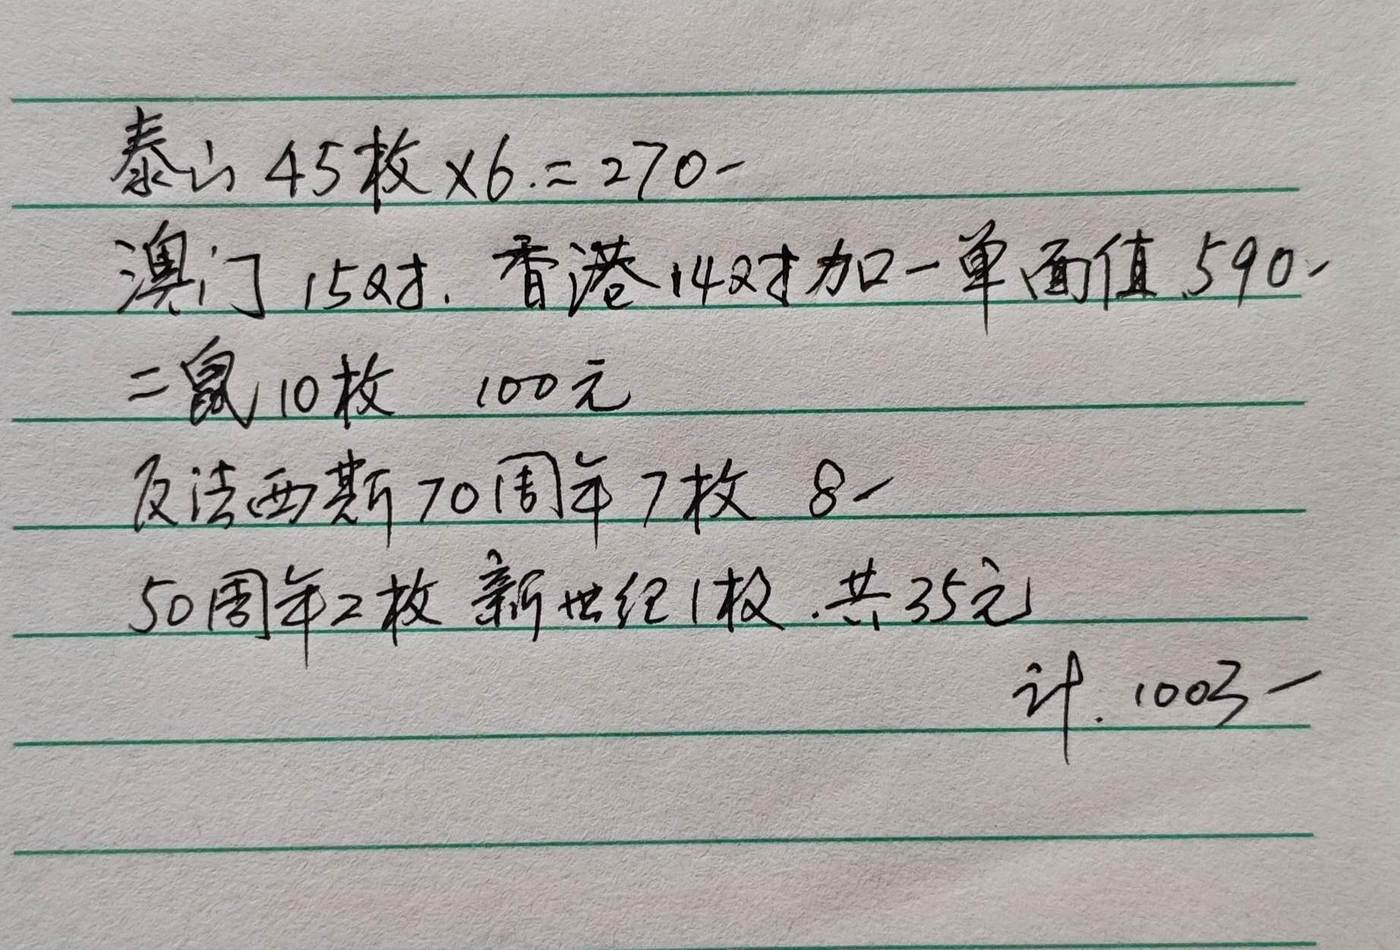 泰山 45枚×6.=270-
澳门 15对. 香港 14对加一单面值 590-
二鼠 10枚 100元
反法西斯70周年7枚 8-
50周年2枚 新世纪1枚.共35元
计. 1003-